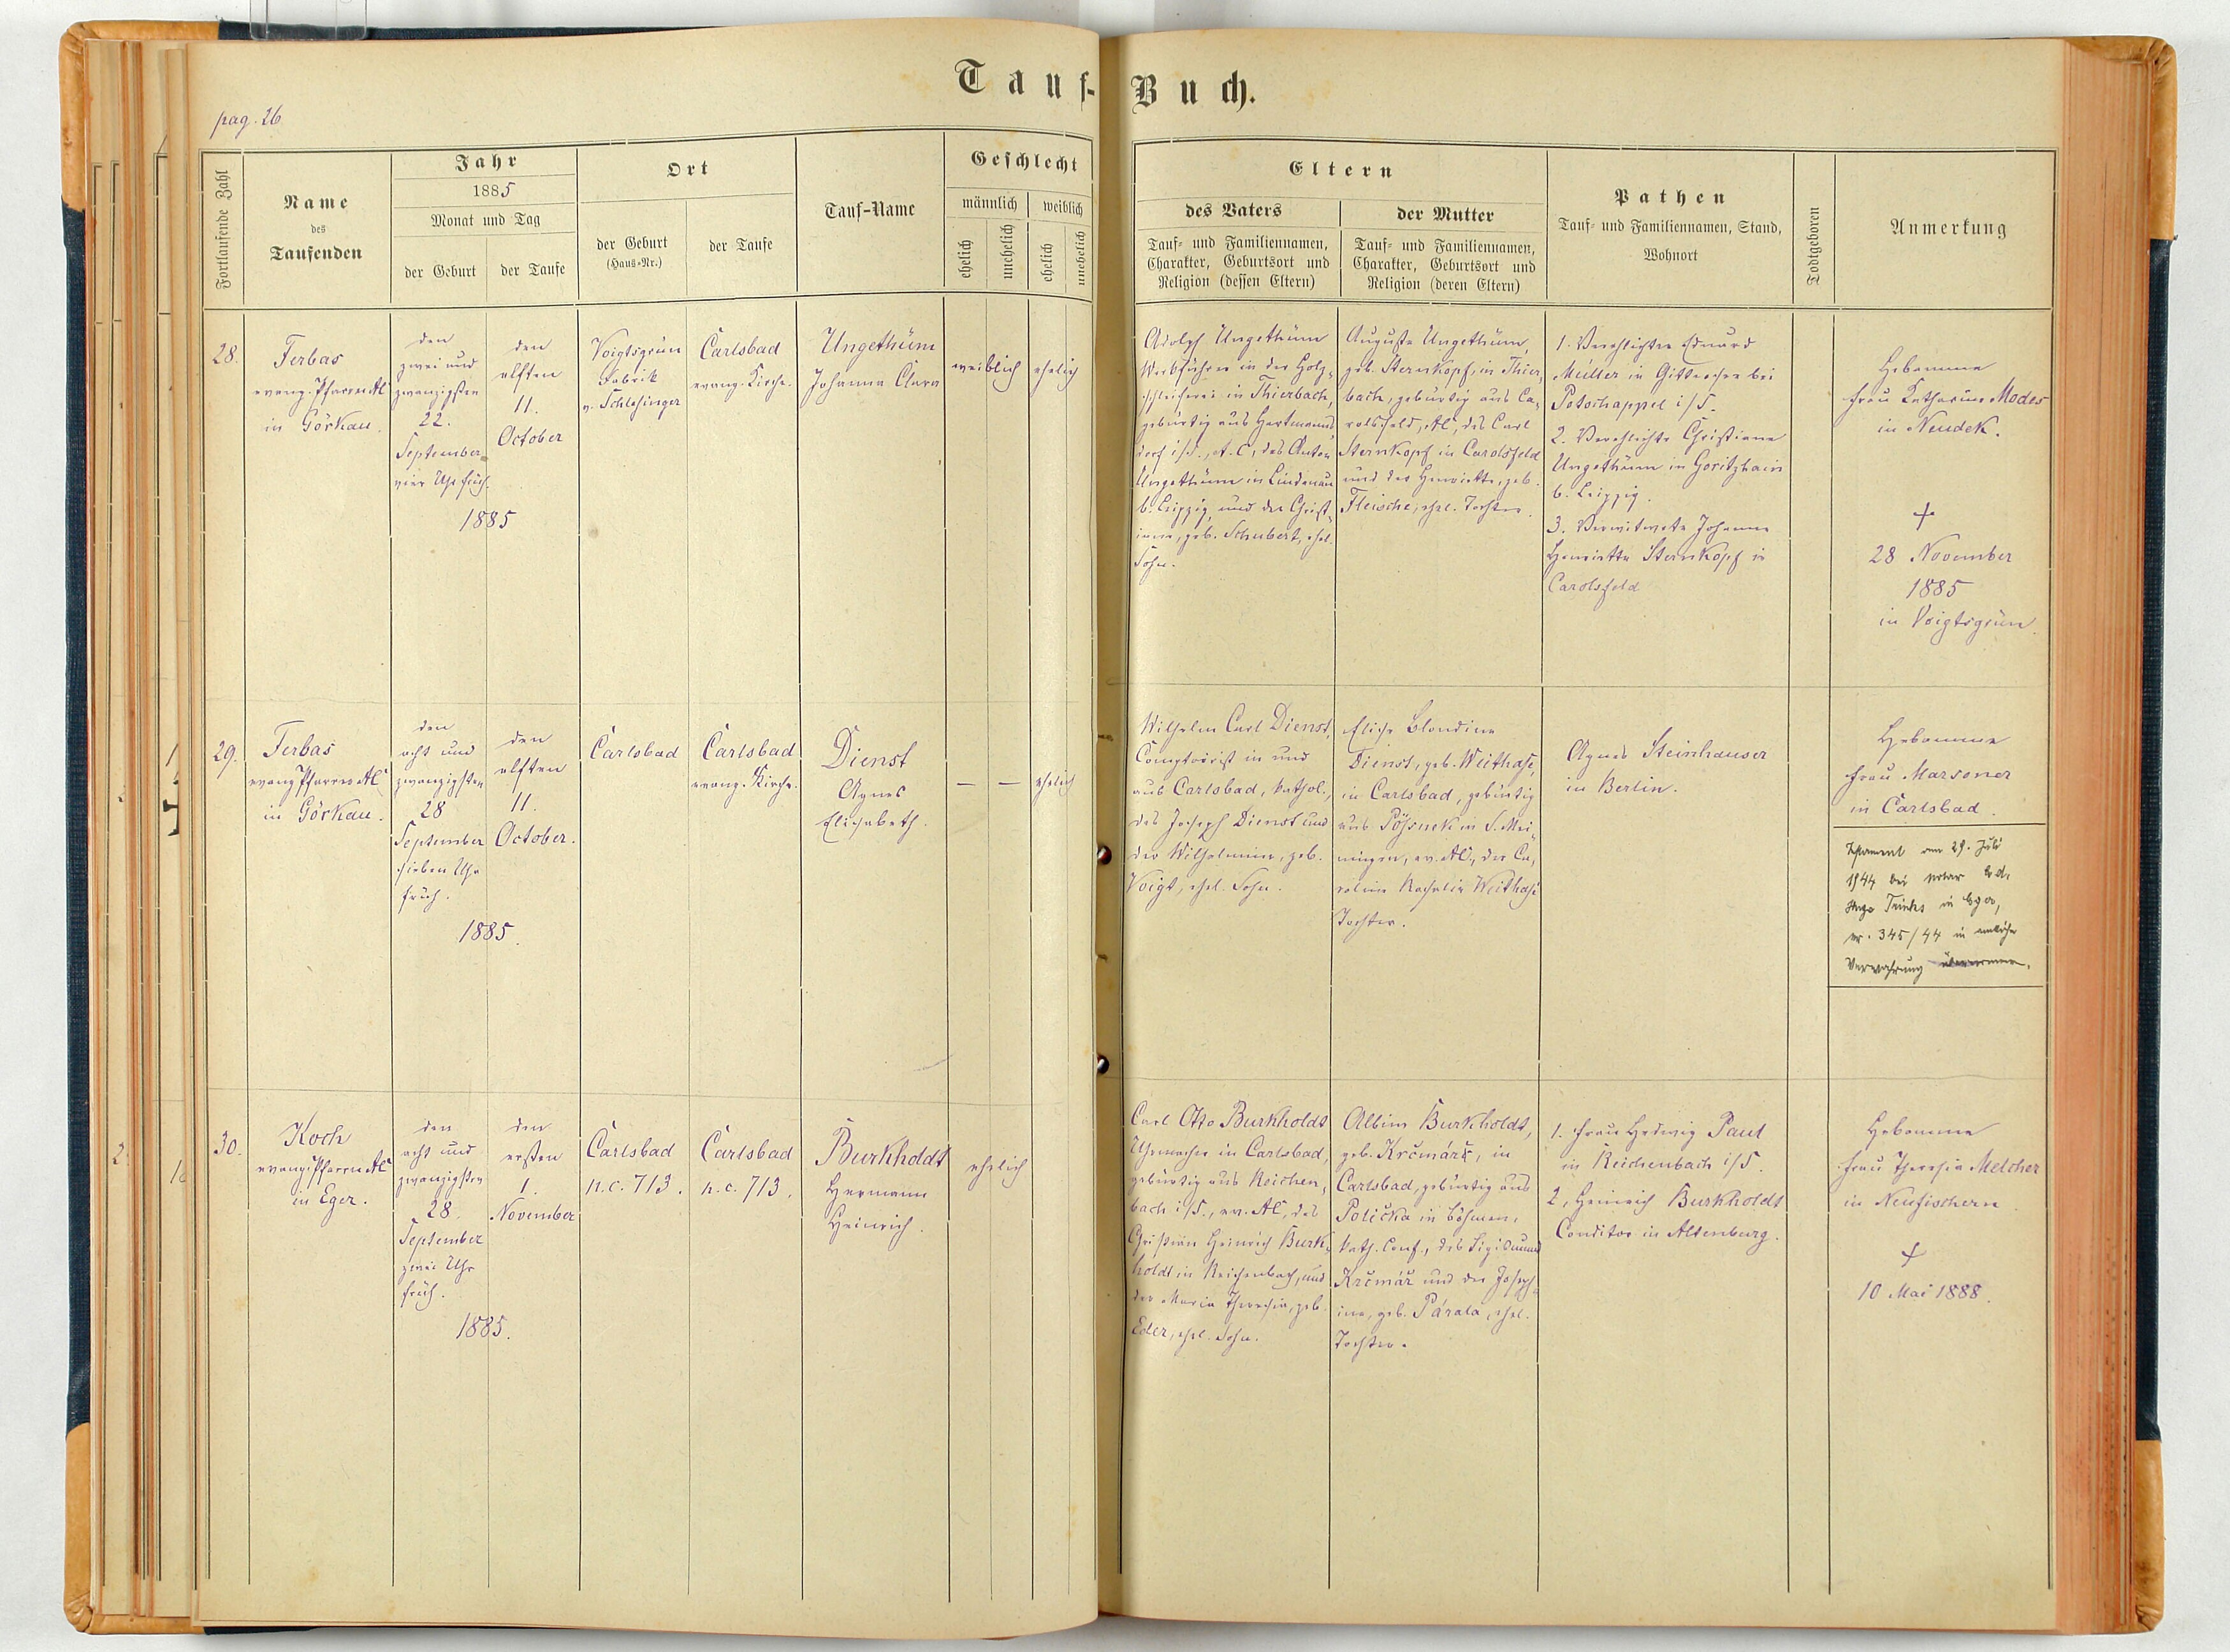 Tauf-Buch.
pag. 26
Fortlaufende Zahl
Name
des
Taufenden
Jahr
1885
Monat und Tag
der Geburt
der Taufe
Ort
der Geburt
(Haus-Nr.)
der Taufe
Tauf-Name
Geschlecht
männlich
weiblich
ehelich
unehelich
ehelich
unehelich
Eltern
des Vaters
Tauf- und Familiennamen,
Charakter, Geburtsort und
Religion (dessen Eltern)
der Mutter
Tauf- und Familiennamen,
Charakter, Geburtsort und
Religion (deren Eltern)
Pathen
Tauf- und Familiennamen, Stand,
Wohnort
Todtgeboren
Anmerkung
28.
Ferbas
evang. Pfarrer AC
in Görkau.
den
zwei und
zwanzigsten
22.
September
vier Uhr früh.
1885
den
elften
11.
October
Voigtsgrün
Fabrik
v. Schlesinger
Carlsbad
evang. Kirche.
Ungethüm
Johanna Clara
weiblich
ehelich
Adolph Ungethüm
Werkführer in der Holz-
schleiferei in Thierbach,
gebürtig aus Hartmanns-
dorf i/S., A.C., des Anton
Ungethüm in Lindenau
b. Leipzig und der Christ-
iane, geb. Schubert, ehel.
Sohn.
Auguste Ungethüm,
geb. Sternkopf, in Thier-
bach, gebürtig aus Ca-
rolsfeld, AC, des Carl
Sternkopf in Carolsfeld
und der Henriette, geb.
Fleische, ehel. Tochter.
1. Verehlichter Eduard
Müller in Gittersee bei
Potschappel i/S.
2. Verehlichte Christiane
Ungethüm in Goritzhain
b. Leipzig.
3. Verwitwete Johanne
Henriette Sternkopf in
Carolsfeld
Hebamme
Frau Katharina Modes
in Neudek.
†
28 November
1885
in Voigtsgrün.
29.
Ferbas
evang Pfarrer AC
in Görkau.
den
acht und
zwanzigsten
28
September
sieben Uhr
früh.
1885.
den
elften
11.
October.
Carlsbad
Carlsbad
evang. Kirche.
Dienst
Agnes
Elisabeth.
— —
ehelich
Wilhelm Carl Dienst,
Comptoirist in und
aus Carlsbad, kathol.,
des Joseph Dienst und
der Wilhelmine, geb.
Voigt, ehel. Sohn.
Elise Blondine
Dienst, geb. Weithase,
in Carlsbad, gebürtig
aus Pößnek in S. Mei-
ningen, ev. AC., der Ca-
roline Rosalie Weithase
Tochter.
Agnes Steinhauser
in Berlin.
Hebamme
Frau Marsoner
in Carlsbad.
Testament am 29. Juli
1944 bei Notar
Hugo Trinks in Eger,
nr. 345/44 in amtliche
Verwahrung
30.
Koch
evang. Pfarrer AC
in Eger.
den
acht und
zwanzigsten
28.
September
zwei Uhr
früh.
1885.
den
ersten
1.
November
Carlsbad
n.c. 713.
Carlsbad
n.c. 713.
Burkholdt
Hermann
Heinrich.
ehelich
Carl Otto Burkholdt
Uhrmacher in Carlsbad,
gebürtig aus Reichen-
bach i/S., ev. AC, des
Christian Heinrich Burk-
holdt in Reichenbach, und
der Maria Theresia, geb.
Eder, ehel. Sohn.
Albine Burkholdt,
geb. Krčmárž, in
Carlsbad, gebürtig aus
Polička in Böhmen,
kath. Conf., des Sigismund
Krčmář und der Joseph-
ine, geb. Párala, ehel.
Tochter.
1. Frau Hedwig Paul
in Reichenbach i/S.
2, Heinrich Burkholdt
Conditor in Altenburg.
Hebamme
Frau Theresia Melcher
in Neufischern.
†
10 Mai 1888.